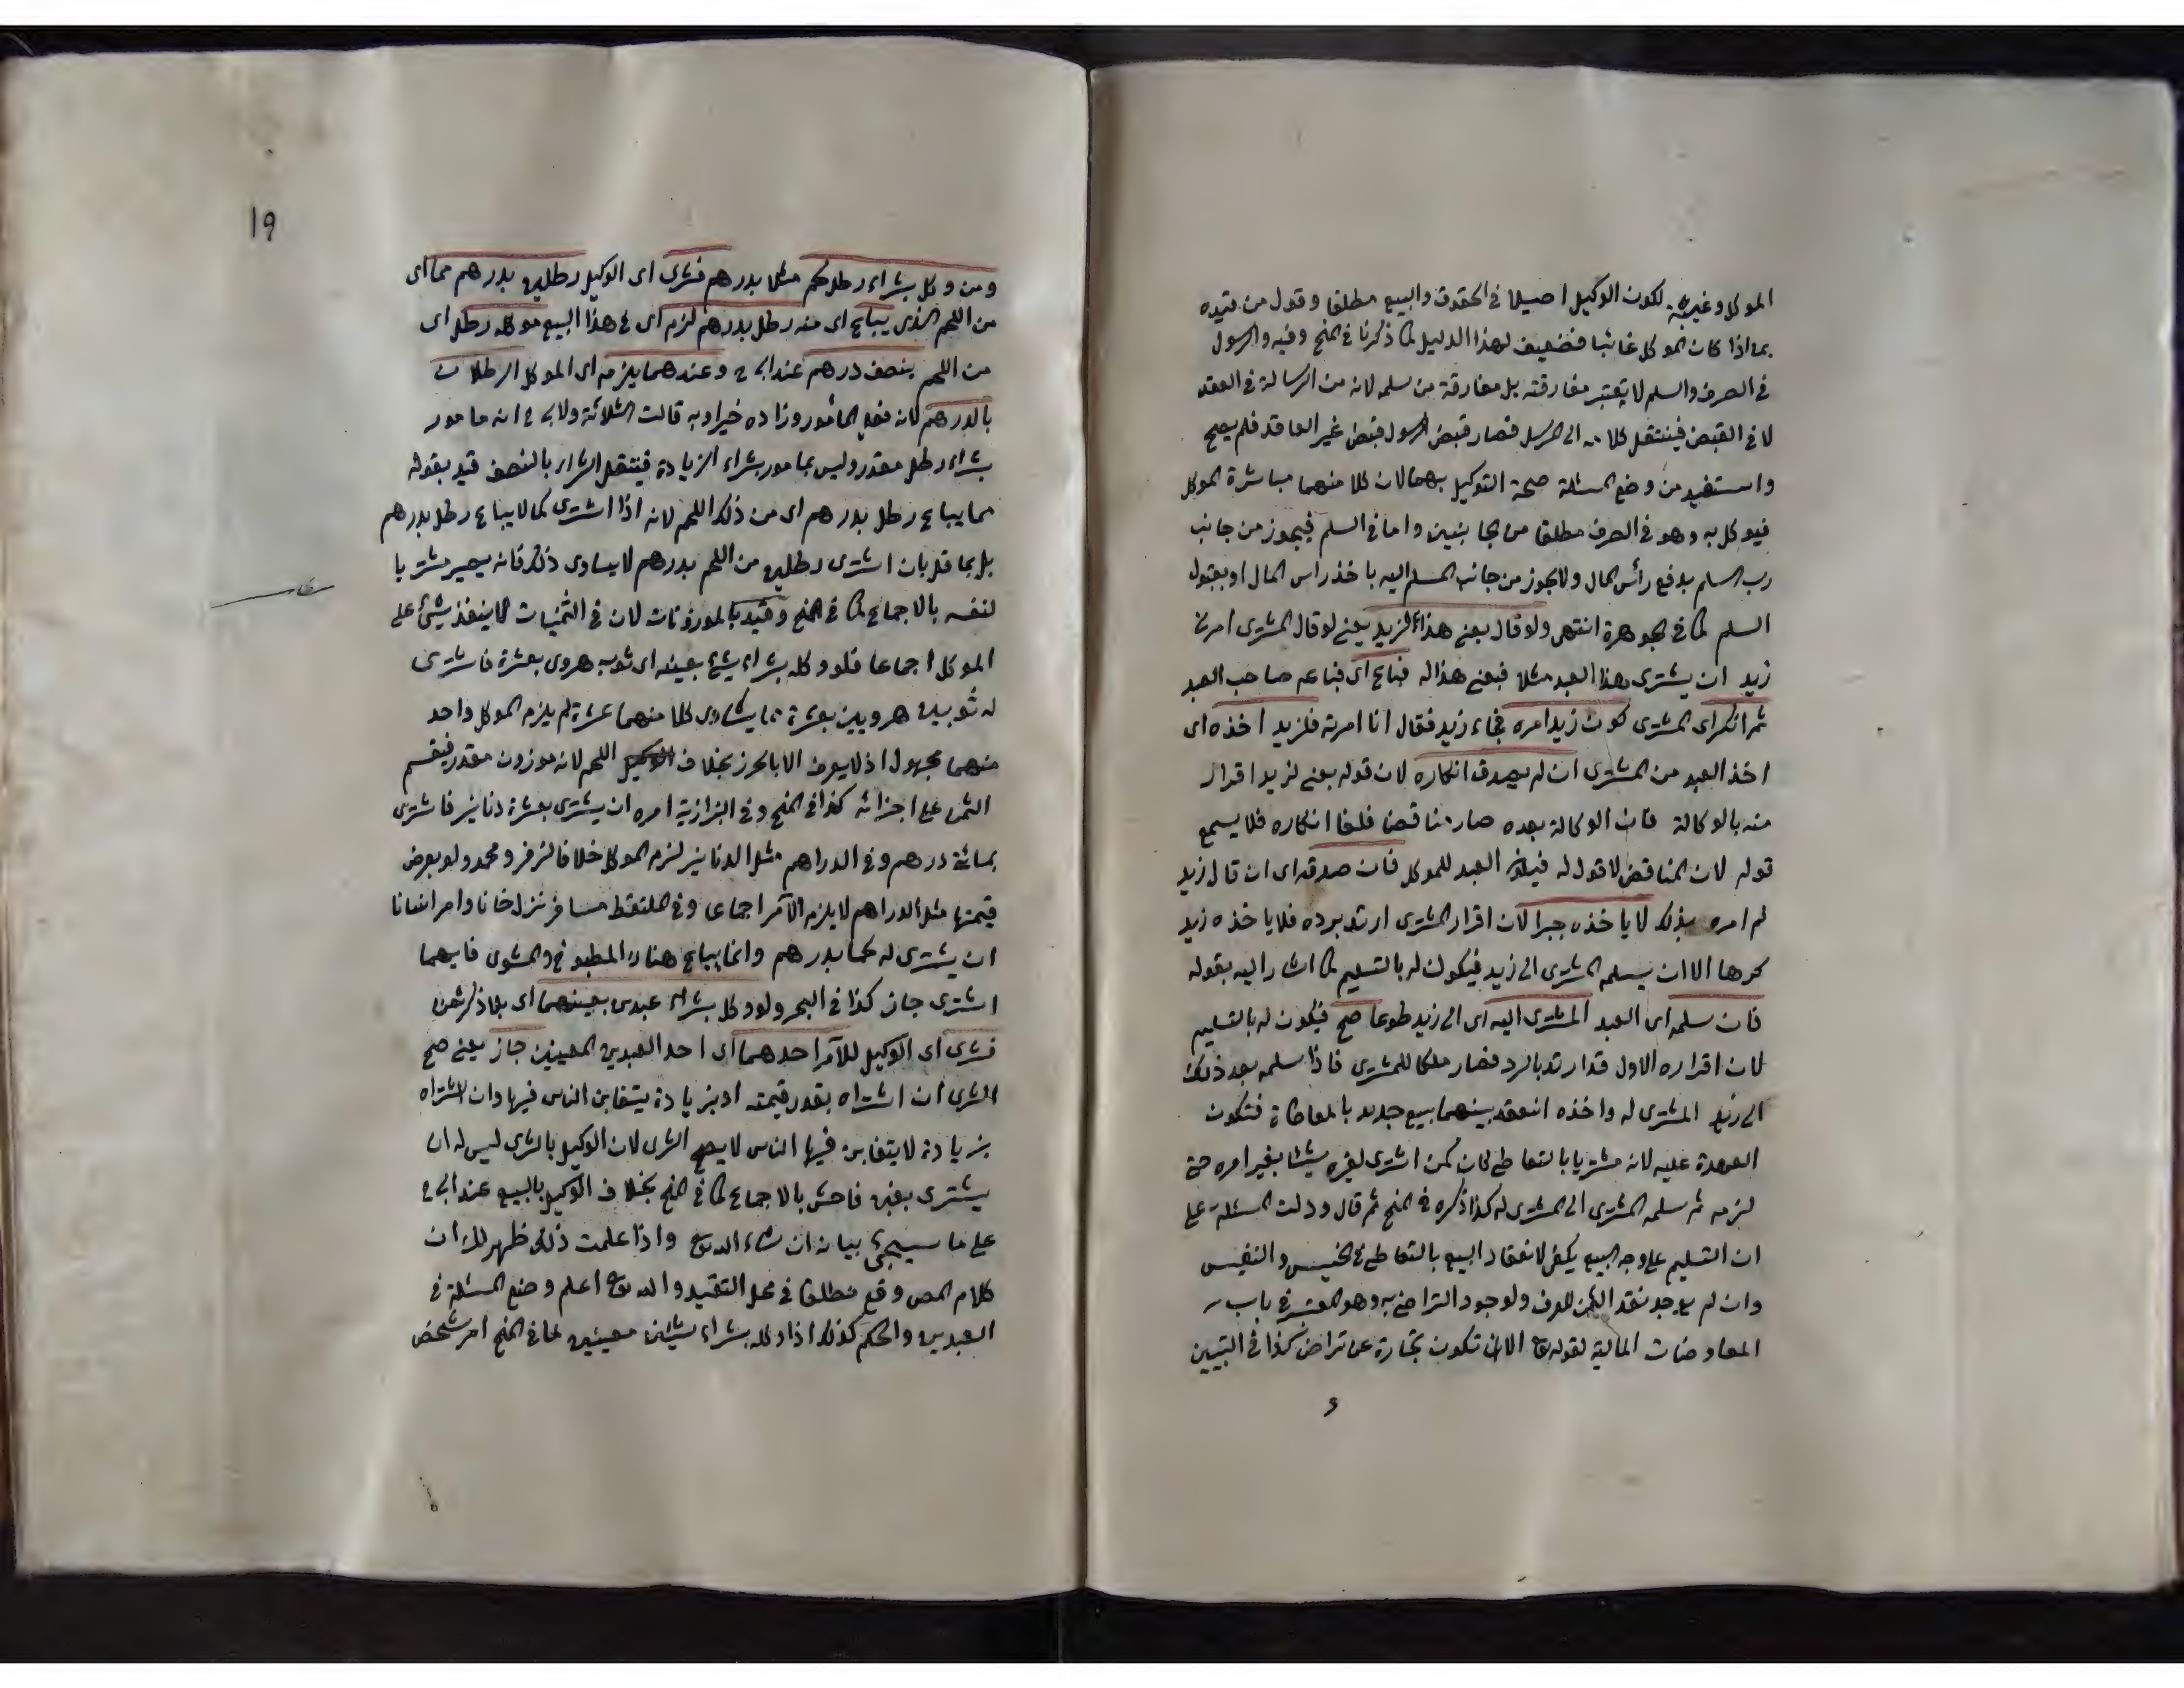 الموكل وغيبته لكون الوكيل اصيلا في الحقوق والبيع مطلقا وقول من قيده
بما اذا كان الموكل غائبا فضعيف لهذا الدليل كما ذكرنا في المنح وفيه والرسول
في الصرف والسلم لا يعتبر مفارقته بل مفارقة من سلمه لانه من الرسالة في العقد
لا في القبض فينتقل كلامه الى المرسل فصار قبض الرسول قبض غير العاقد فلم يصح
واستفيد من وضع المسئلة صحة التوكيل بهما لان كلا منهما مباشرة الموكل
فيوكل به وهو في الصرف مطلقا من الجانبين واما في السلم فيجوز من جانب
رب السلم بدفع رأس المال ولا يجوز من جانب المسلم اليه باخذ راس المال او بقبول
السلم كما في الجوهرة انتهى ولو قال بعني هذا لزيد يعني لو قال المشترى امرني
زيد ان يشترى هذا العبد مثلا فبعني هذا له فباع اى فباعه صاحب العبد
ثم انكر اى المشترى كون زيد امره فجاء زيد فقال انا امرته فلزيد اخذه اى
اخذ العبد من المشترى ان لم يصدق انكاره لان قوله بعني لزيد اقرار
منه بالوكالة فان الوكالة بعده صار مناقضا فلغا انكاره فلا يسمع
قوله لان المناقض لا قول له فيأخذ العبد للموكل فان صدقه اى ان قال زيد
لم امره بذلك لا ياخذه جبرا لان اقرار المشترى ارتد برده فلا ياخذه زيد
كرها الا ان يسلمه المشترى الى زيد فيكون له بالتسليم كما اشار اليه بقوله
فان سلمه اى العبد المشترى اليه اى الى زيد طوعا صح فيكون له بالتسليم
لان اقراره الاول قد ارتد بالرد فصار ملكا للمشترى فاذا سلمه بعد ذلك
الى زيد المشترى له واخذه انعقد بينهما بيع جديد بالمعاطاة فتكون
العهدة عليه لانه مشتريا بالتعاطي كان كمن اشترى لغيره شيئا بغير امره حتى
لزمه ثم سلمه المشترى الى المشترى له كذا ذكره في المنح ثم قال ودلت المسئلة على
ان التسليم على وجه البيع يكفى لانعقاد البيع بالتعاطي في الخسيس والنفيس
وان لم يوجد نقد الثمن للعرف ولوجود التراضي به وهو المعتبر في باب
المعاوضات المالية لقوله تع الا ان تكون تجارة عن تراض كذا في التبيين
و
19
ومن وكل بشراء رطل لحم مثلا بدرهم فشرى اى الوكيل رطلين بدرهم مما اى
من اللحم الذى يباع اى منه رطل بدرهم لزم اى في هذا البيع موكله رطل اى
من اللحم بنصف درهم عند ابى ح وعندهما يلزمه اى الموكل الرطلان
بالدرهم لانه فعل المأمور وزاده خيرا وبه قالت الثلاثة ولابى ح انه مامور
بشراء رطل مقدر وليس بمامور بشراء الزيادة فينتقل الشراء بالنصف قيد بقوله
مما يباع رطل بدرهم اى من ذلك اللحم لانه اذا اشترى كما لا يباع رطل بدرهم
بل بما قل بان اشترى رطلين من اللحم بدرهم لا يساوى ذلك فانه يصير مشتريا
لنفسه بالاجماع كما في المنح وقيد بالموزونات لان في الثمنيات لا ينفذ شئ على
الموكل اجماعا فلو وكله بشراء شئ بعينه اى ثوب هروى بعشرة فاشترى
له ثوبين هرويين بعشرة مما يساوى كلا منهما عشرة لم يلزم الموكل واحد
منهما مجهول اذ لا يعرف الا بالحرز بخلاف اللحم لانه موزون مقدر فيقسم
الثمن على اجزائه كذا في المنح وفي البزازية امره ان يشترى بعشرة دنانير فاشترى
بمائة درهم وفي الدراهم مثل الدنانير لزم الموكل خلافا لزفر ومحمد ولو بعرض
قيمتها مثل الدراهم لا يلزم الآمر اجماعا وفي الملتقط مسافر نزل خانا وامر انسانا
ان يشترى له لحما بدرهم وانما يباع هناك المطبوخ والمشوى فايهما
اشترى جاز كذا في البحر ولو وكل بشراء عبدين بعينهما اى بلا ذكر ثمن
فشرى اى الوكيل للآمر احدهما اى احد العبدين المعينين جاز يعني صح
الشرى ان اشتراه بقدر قيمته او بزيادة يتغابن الناس فيها وان اشتراه
بزيادة لا يتغابن فيها الناس لا يصح الشرى لان الوكيل بالشرى ليس له ان
يشترى بغبن فاحش بالاجماع كما في المنح بخلاف الوكيل بالبيع عند ابى ح
على ما سيجئ بيانه ان شاء الله تع واذا علمت ذلك ظهر لك ان
كلام المص وقع مطلقا في محل التقييد والله تع اعلم وضع المسئلة في
العبدين والحكم كذلك اذا وكله بشراء شيئين معينين لما في المنح امر شخص